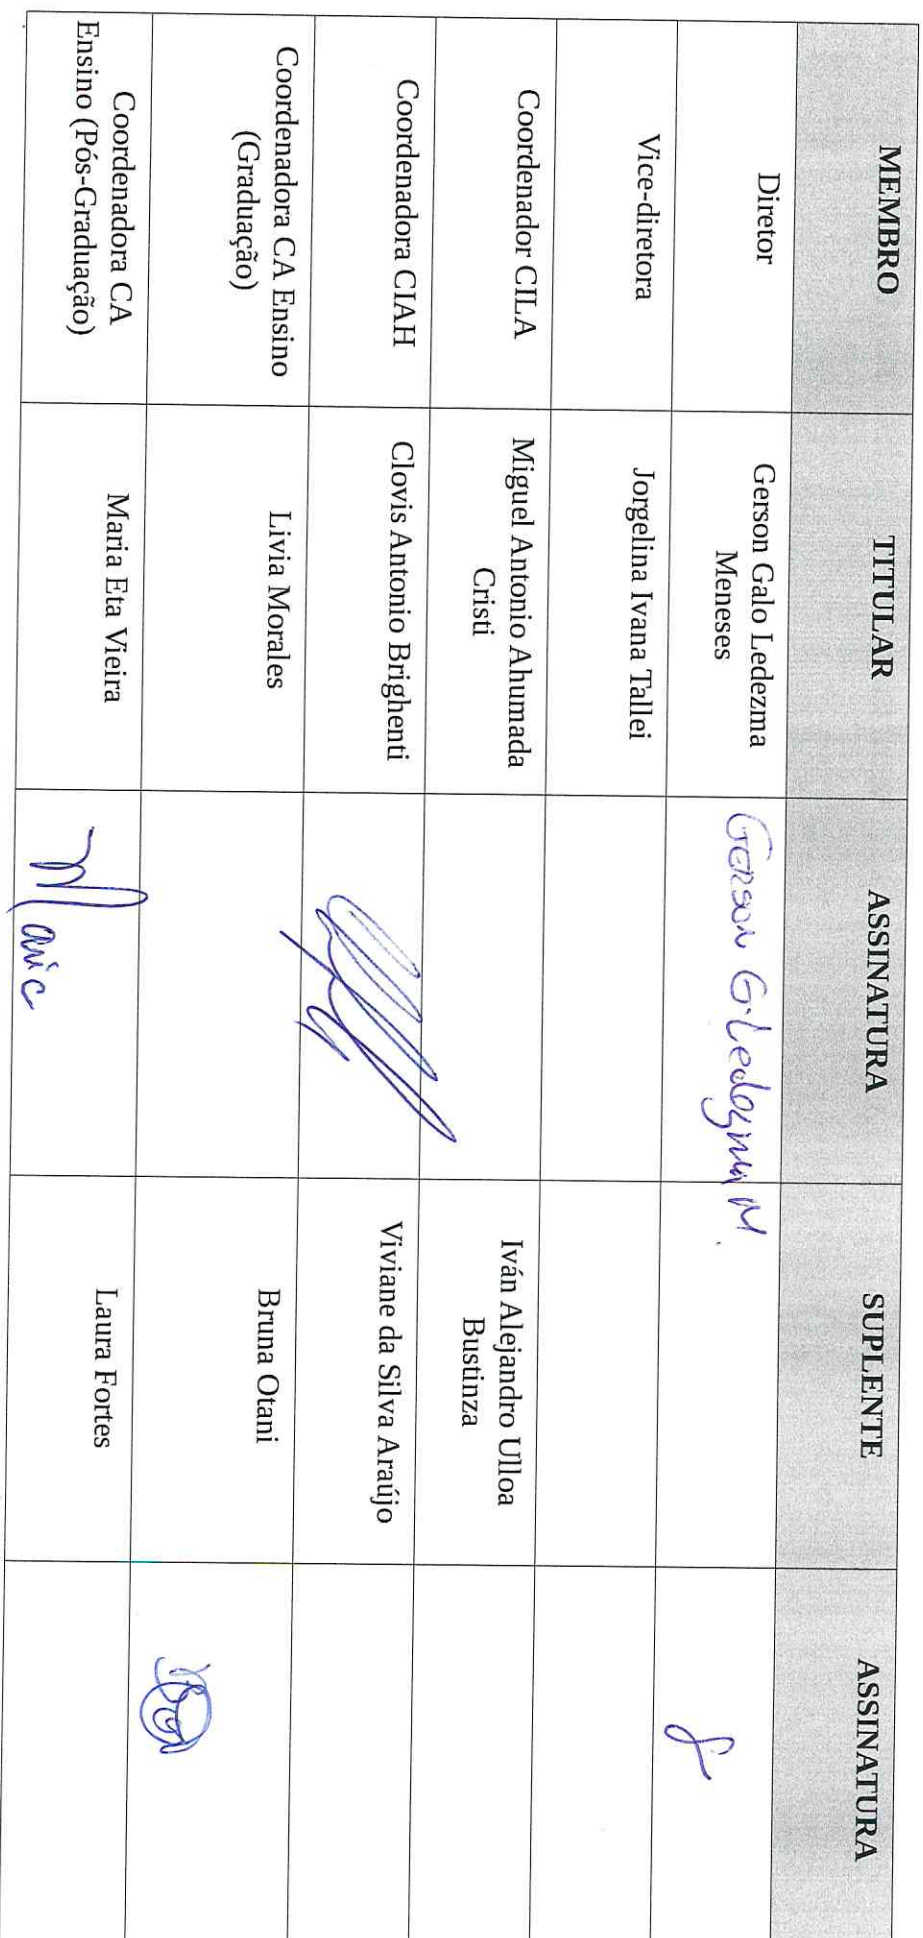 MEMBRO TITULAR ASSINATURA SUPLENTE ASSINATURA
Diretor
Gerson Galo Ledezma
Meneses
Gerson G Ledezma M.
Vice-diretora
Jorgelina Ivana Tallei
Coordenador CILA
Miguel Antonio Ahumada
Cristi
Iván Alejandro Ulloa
Bustinza
Coordenadora CIAH
Clovis Antonio Brighenti
Viviane da Silva Araújo
Coordenadora CA Ensino
(Graduação)
Livia Morales
Bruna Otani
Coordenadora CA
Ensino (Pós-Graduação)
Maria Eta Vieira
Laura Fortes